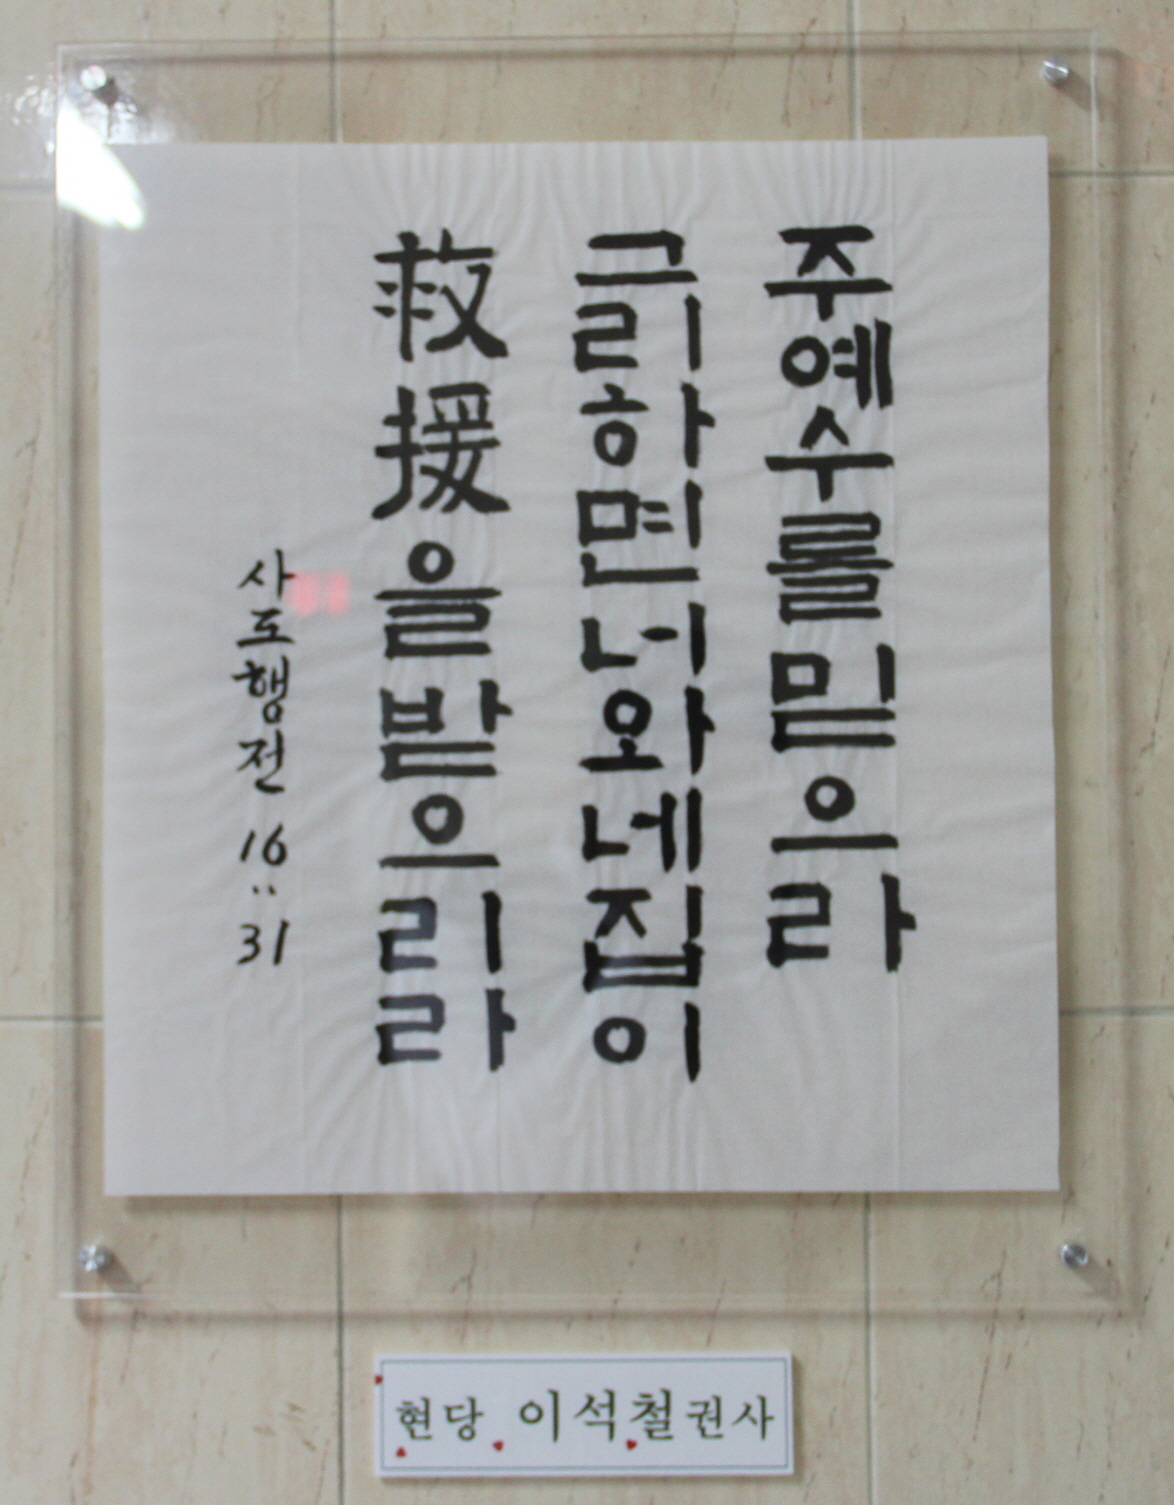 주예수를믿으라
그리하면너와네집이
救援을받으리라
사도행전 16:31
현당 이석철권사